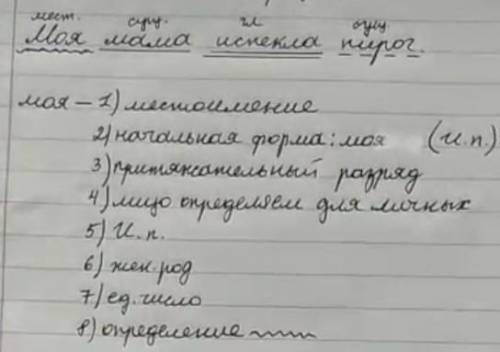 мест. сущ. гл сущ.
Моя мама испекла пирог.
моя – 1) местоимение
2) начальная форма: моя (И.п.)
3) притяжательный разряд
4) лицо определяем для личных
5) И.п.
6) жен.род
7) ед.число
8) определение